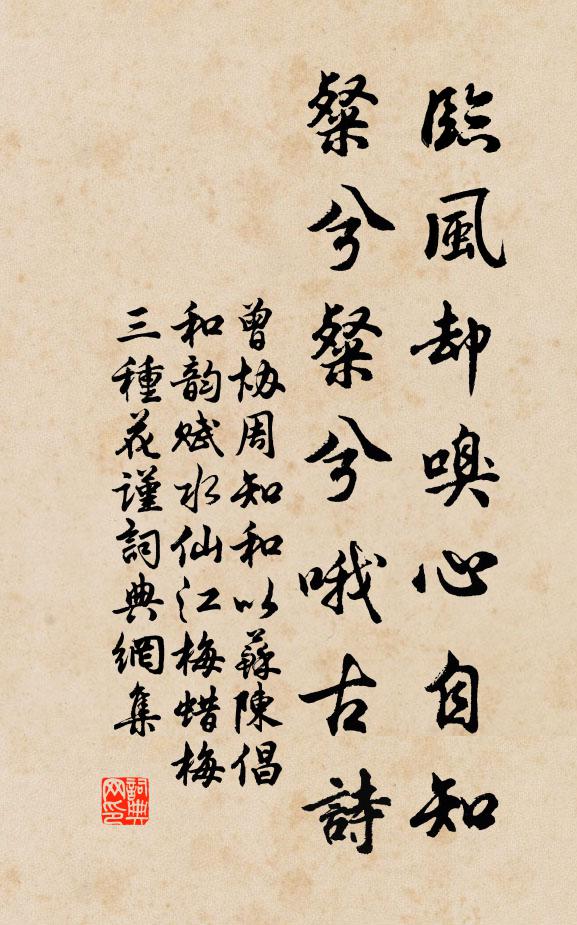 臨風却嗅心自知
粲兮粲兮哦古詩
曾协周知和以蘇陳倡
和韵赋水仙江梅蜡梅
三種花谨詞典網集
詞典
网印